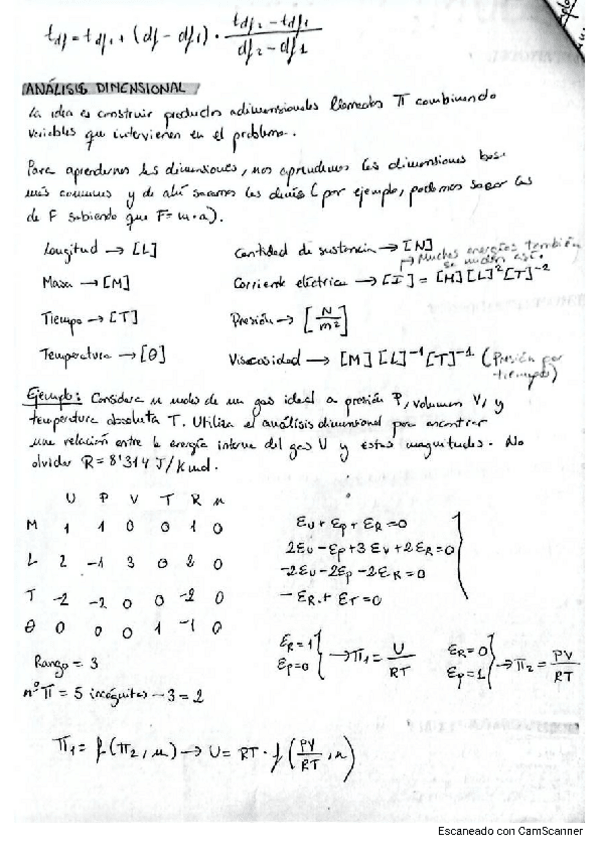 t_df = t_df1 + (df - df1) · (t_df2 - t_df1)/(df2 - df1)
ANÁLISIS DIMENSIONAL
La idea es construir productos adimensionales llamados π combinando
variables que intervienen en el problema.
Para aprendernos las dimensiones, nos aprendemos las dimensiones base
más comunes y de ahí sacamos las demás (por ejemplo, podemos sacar las
de F sabiendo que F = m·a).
Longitud → [L] Cantidad de sustancia → [N]
→ Muchas energías también se miden así.
Masa → [M] Corriente eléctrica → [I] = [M][L]²[T]⁻²
Tiempo → [T] Presión → [N/m²]
Temperatura → [θ] Viscosidad → [M][L]⁻¹[T]⁻¹ (Presión por
tiempo)
Ejemplo: Considera n moles de un gas ideal a presión P, volumen V, y
temperatura absoluta T. Utiliza el análisis dimensional para encontrar
una relación entre la energía interna del gas U y estas magnitudes. No
olvidar R = 8'314 J/K mol.
U P V T R n
M 1 1 0 0 1 0
L 2 -1 3 0 2 0
T -2 -2 0 0 -2 0
θ 0 0 0 1 -1 0
εU + εP + εR = 0
2εU - εP + 3εV + 2εR = 0
-2εU - 2εP - 2εR = 0
-εR + εT = 0
Rango = 3
nº π = 5 incógnitas - 3 = 2
εR = 1
εP = 0 → π1 = U/RT
εR = 0
εP = 1 → π2 = PV/RT
π1 = f(π2, n) → U = RT · f(PV/RT, n)
Escaneado con CamScanner